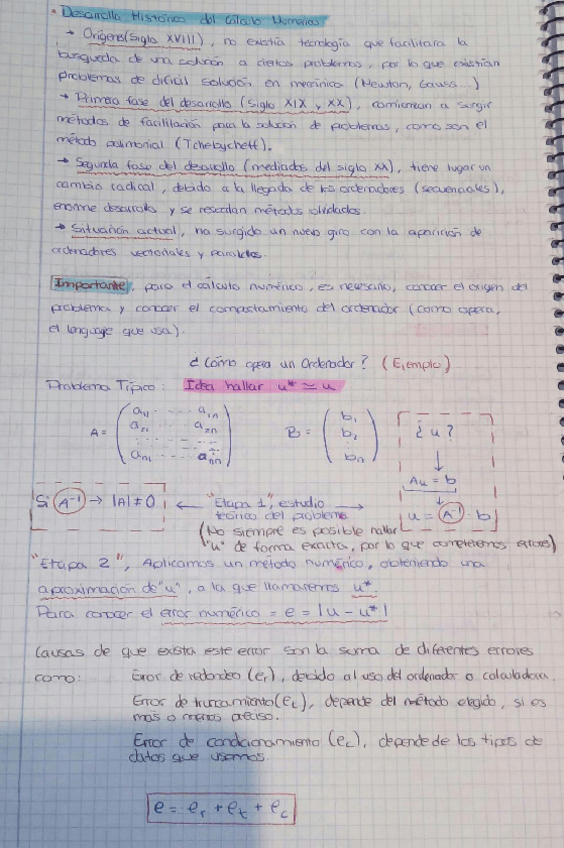 • Desarrollo Histórico del Cálculo Numérico
→ Orígenes (Siglo XVIII), no existía tecnología que facilitara la
búsqueda de una solución a ciertos problemas, por lo que existían
problemas de difícil solución en mecánica (Newton, Gauss...)
→ Primera fase del desarrollo (Siglo XIX y XX), comienzan a surgir
métodos de facilitación para la solución de problemas, como son el
método polinomial (Tchebycheff).
→ Segunda fase del desarrollo (mediados del siglo XX), tiene lugar un
cambio radical, debido a la llegada de los ordenadores (secuenciales),
enorme desarrollo y se rescatan métodos olvidados.
→ Situación actual, ha surgido un nuevo giro con la aparición de
ordenadores vectoriales y paralelos.
Importante, para el cálculo numérico, es necesario, conocer el origen del
problema y conocer el comportamiento del ordenador (como opera,
el lenguage que usa).
¿Cómo opera un Ordenador? (Ejemplo)
Problema Típico: Idea hallar u* ≃ u
A = ( a11 ..... a1n
a21 a2n
..........
an1 ..... ann )
B = ( b1
b2
bn )
¿u?
↓
Au = b
↓
u = A⁻¹ · b
Si A⁻¹ → |A| ≠ 0 ← "Etapa 1", estudio →
teórico del problema
(No siempre es posible hallar
"u" de forma exacta, por lo que cometeremos errores)
"Etapa 2", Aplicamos un método numérico, obteniendo una
aproximación de "u", a la que llamaremos u*
Para conocer el error numérico = e = |u - u*|
Causas de que exista este error son la suma de diferentes errores
como: Error de redondeo (er), debido al uso del ordenador o calculadora.
Error de truncamiento (et), depende del método elegido, si es
mas o menos preciso.
Error de condicionamiento (ec), depende de los tipos de
datos que usemos.
e = er + et + ec